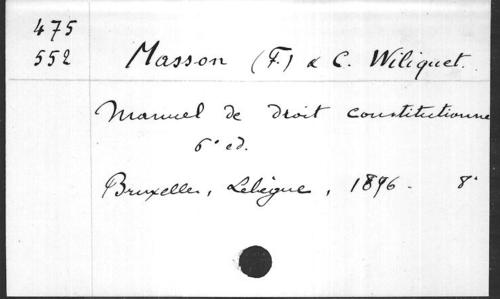 475
552
Masson (F.) & C. Wiliquet.
Manuel de droit constitutionne
6e ed.
Bruxelles, Lebègue, 1896. 8°